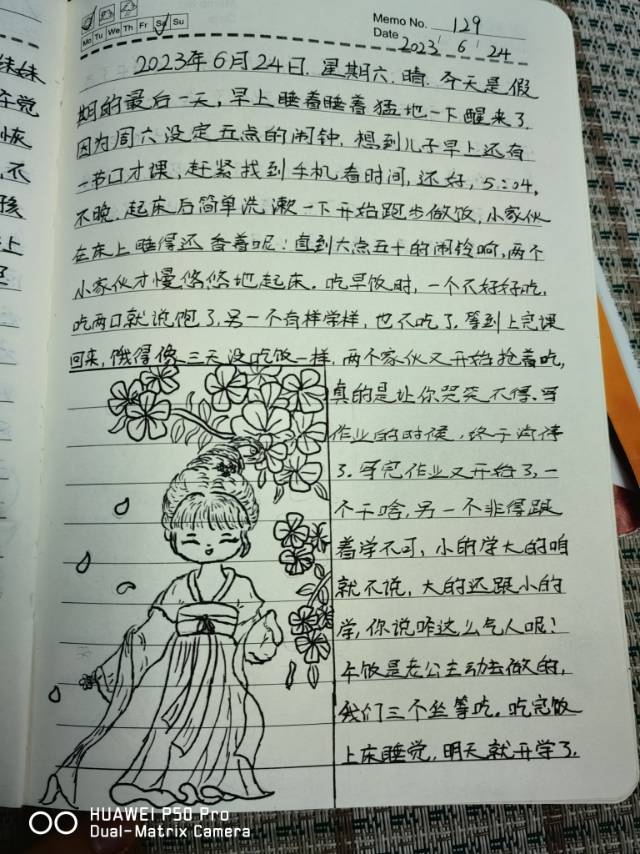 妹妹
午觉
恢
不
孩
上
Mo Tu We Th Fr Sa Su
Memo No. 129
Date 2023 / 6 / 24
2023年6月24日. 星期六. 晴. 今天是假
期的最后一天, 早上睡着睡着猛地一下醒来了.
因为周六没定五点的闹钟. 想到儿子早上还有
一节口才课, 赶紧找到手机看时间, 还好, 5:04,
不晚. 起床后简单洗漱一下开始跑步做饭, 小家伙
在床上睡得还香着呢! 直到六点五十的闹铃响, 两个
小家伙才慢悠悠地起床. 吃早饭时, 一个不好好吃,
吃两口就说饱了, 另一个有样学样, 也不吃了. 等到上完课
回来, 饿得像三天没吃饭一样, 两个家伙又开始抢着吃,
真的是让你哭笑不得. 写
作业的时候, 终于消停
了. 写完作业又开始了, 一
个干啥, 另一个非得跟
着学不可, 小的学大的咱
就不说, 大的还跟小的
学, 你说咋这么气人呢!
午饭是老公主动去做的,
我们三个坐等吃. 吃完饭
上床睡觉, 明天就开学了.
HUAWEI P50 Pro
Dual-Matrix Camera